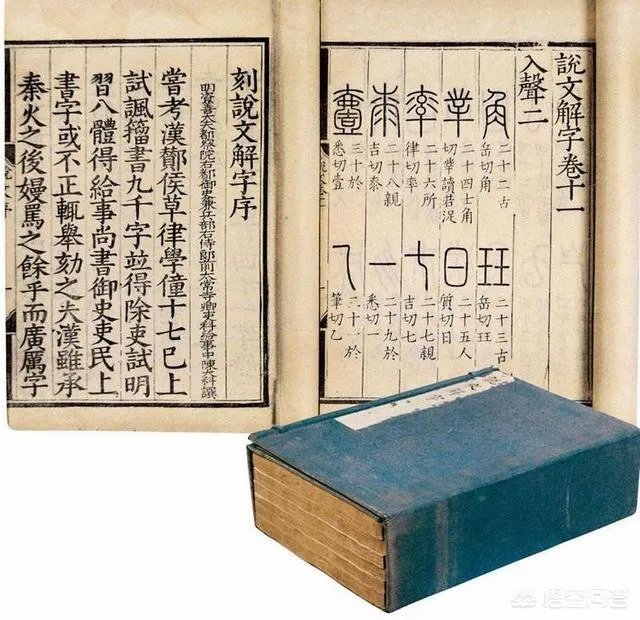 說文解字卷十一
入聲二
角 二十二古
岳切角
玨 二十三古
岳切玨
丵 二十四士角
切丵讀若浞
日 二十五人
質切日
率 二十六所
律切率
七 二十七親
吉切七
桼 二十八親
吉切桼
一 二十九於
悉切一
壹 三十於
悉切壹
乙 三十一於
筆切乙
刻說文解字序
明資善大夫都察院右都御史兼兵部右侍郎前太常寺卿吏科給事中陳大科譔
嘗考漢酇侯草律學僮十七已上
試諷籀書九千字並得除吏試明
習八體得給事尚書御史吏民上
書字或不正輒舉劾之夫漢雖承
秦火之後嫚罵之餘乎而廣厲字
悟空问答